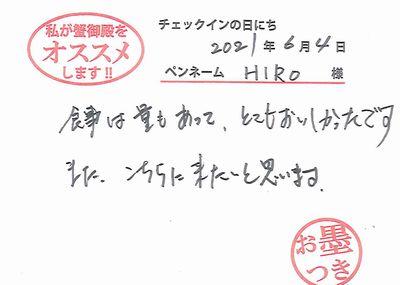 私が蟹御殿を
オススメ
します!!
チェックインの日にち
2021年6月4日
ペンネーム HIRO 様
食事は量もあって、とてもおいしかったです
また、こちらに来たいと思います。
お墨
つき